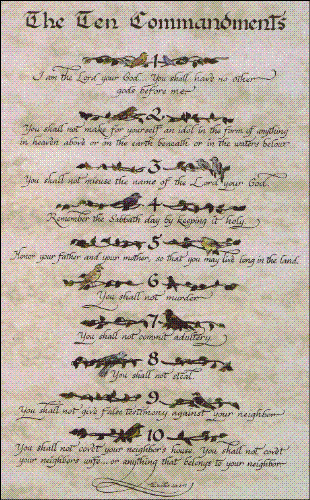 The Ten Commandments
1
I am the Lord your God... You shall have no other
gods before me.
2
You shall not make for yourself an idol in the form of anything
in heaven above or on the earth beneath or in the waters below.
3
You shall not misuse the name of the Lord your God.
4
Remember the Sabbath day by keeping it holy.
5
Honor your father and your mother, so that you may live long in the land.
6
You shall not murder
7
You shall not commit adultery.
8
You shall not steal.
9
You shall not give false testimony against your neighbor
10
You shall not covet your neighbor's house. You shall not covet
your neighbor's wife... or anything that belongs to your neighbor